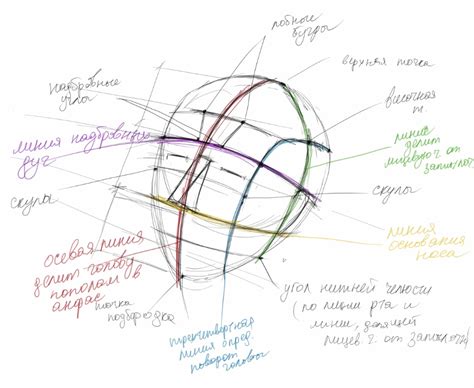 лобные
бугры
верхняя точка
надбровные
углы
височная
т.
линия надбровных
дуг
линия
делит
лицевую ч от
скулы
скулы
линия
основания
носа
осевая линия
делит голову
пополам в
анфас
точка
подбородка
угол нижней челюсти
(по линии рта и
линии, делящей
лицев. ч. от
трехчетвертная
линия опред.
поворот
головы